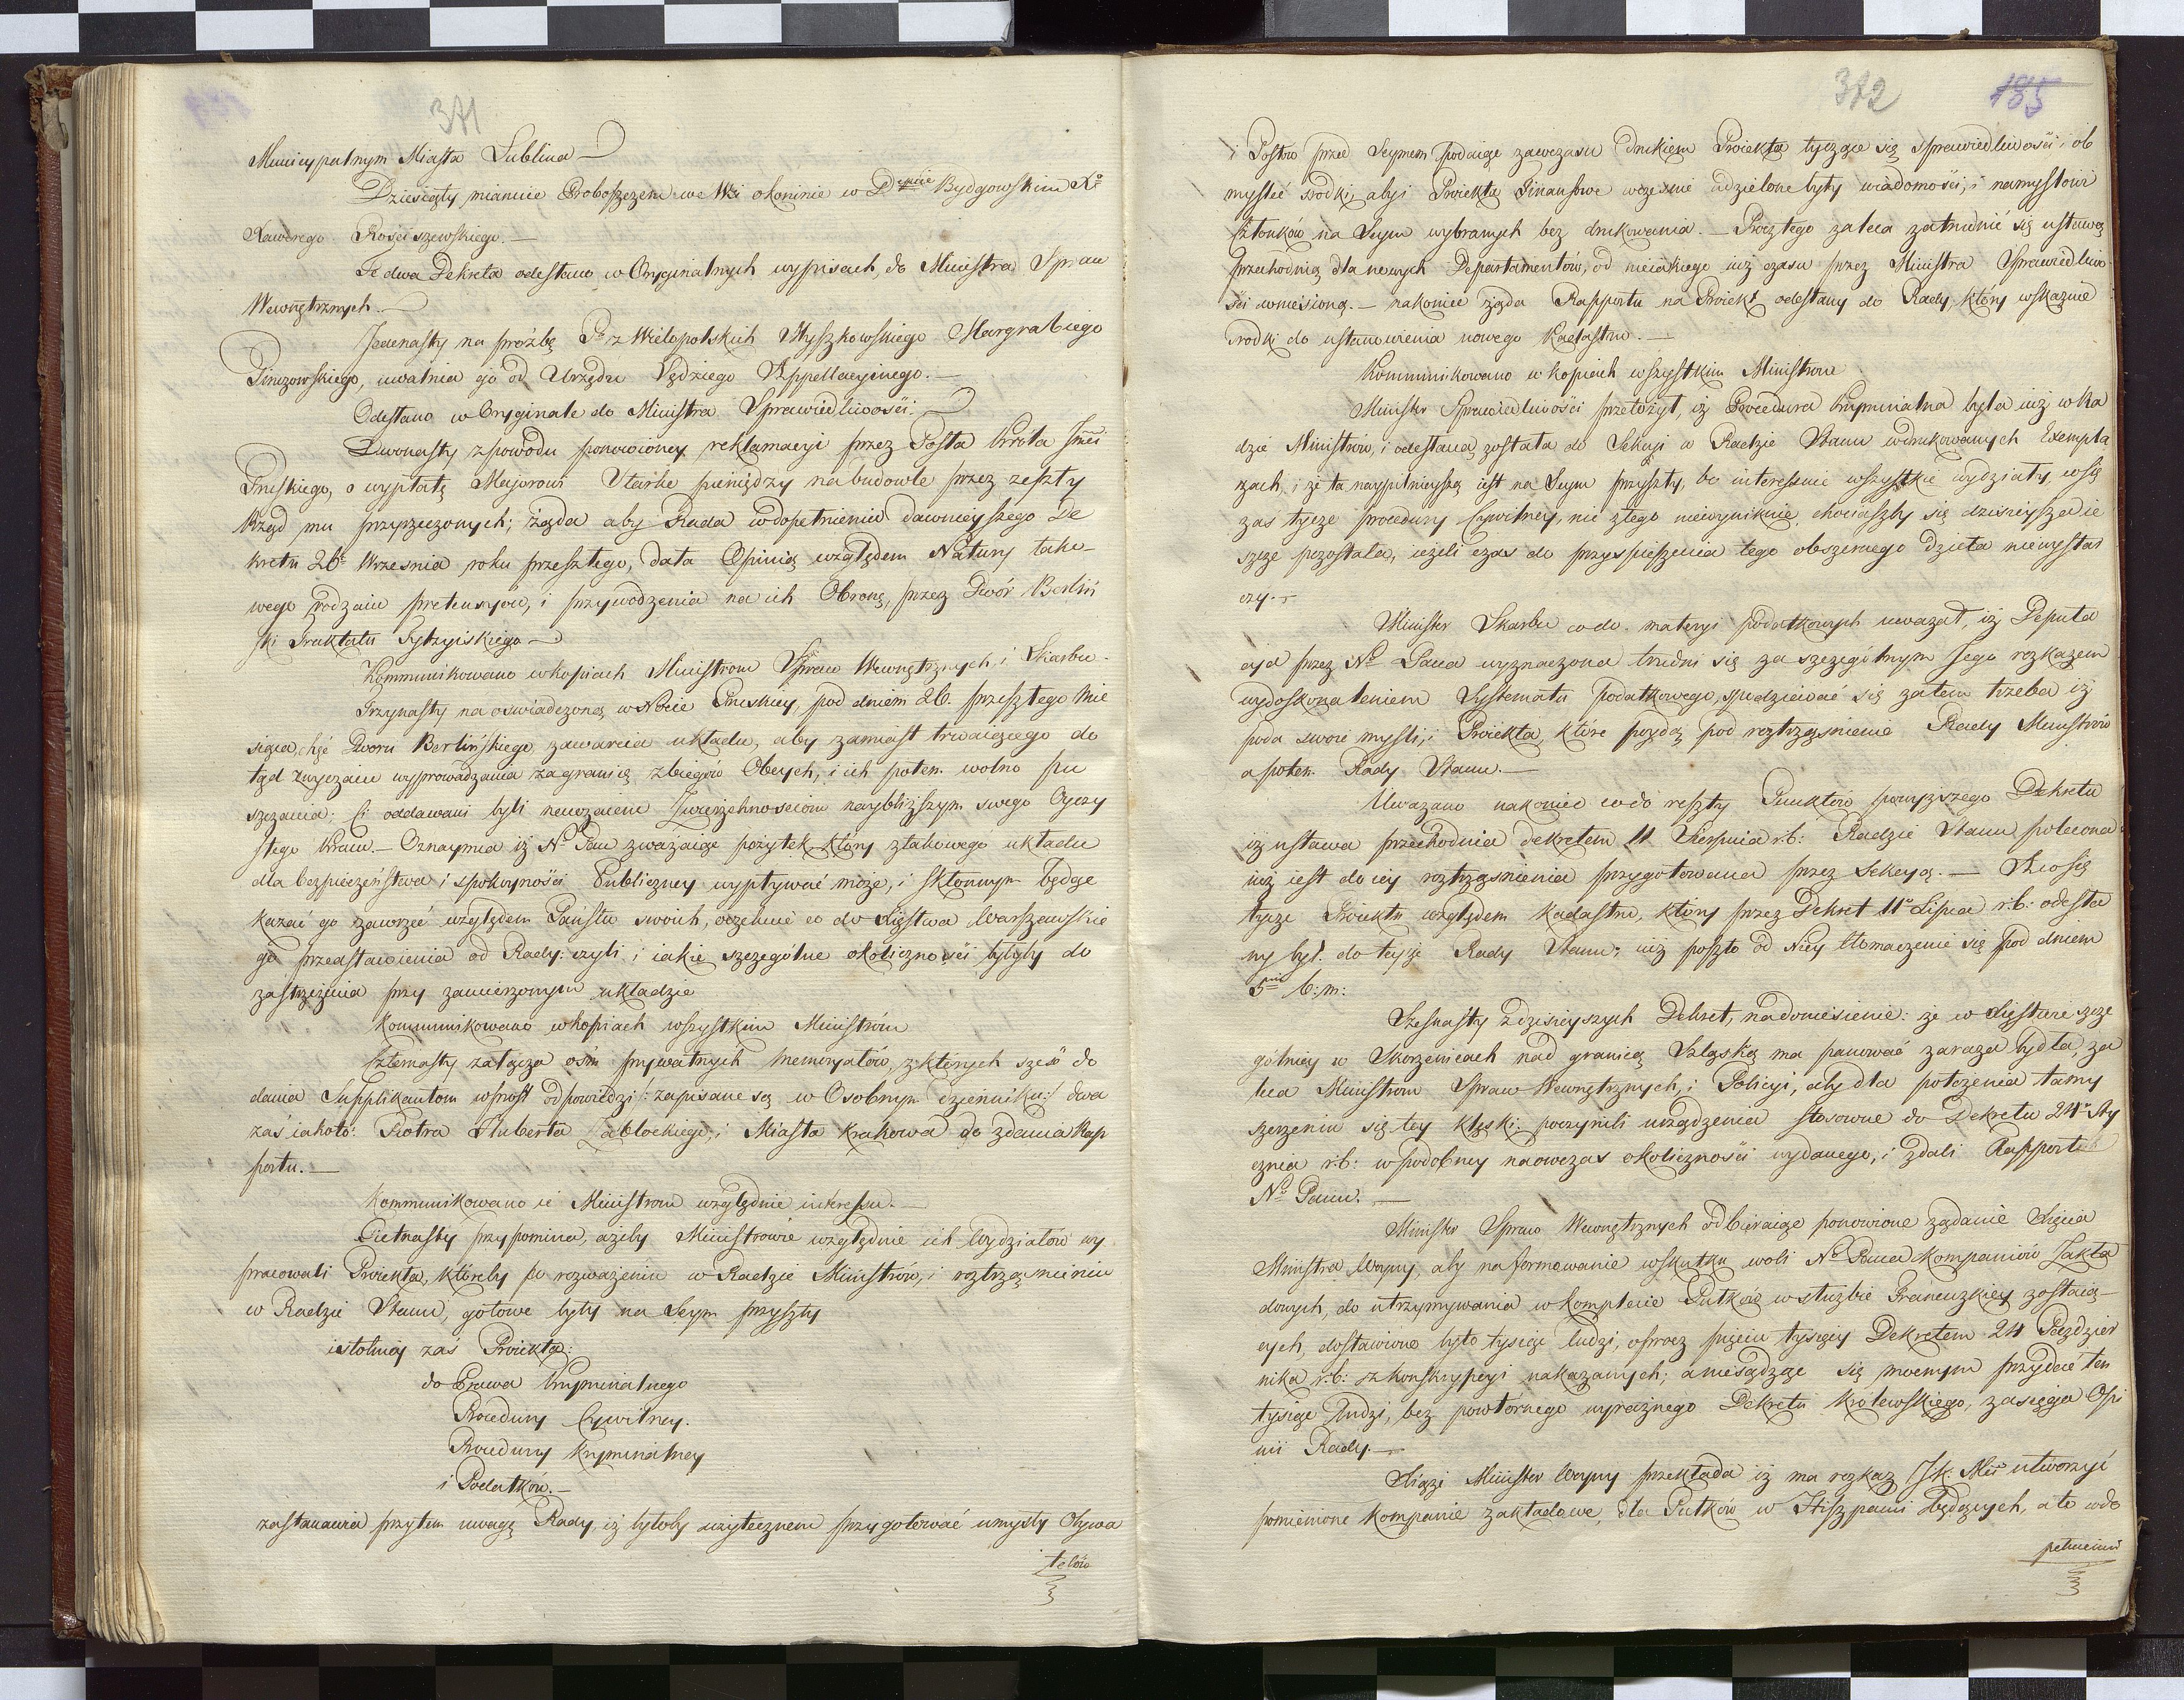 371
Municypalnym Miasta Lublina
Dziesiąty, mianuie Proboszczem we Wsi okoninie w Bydgowskim
Rościszewskiego. —
Te dwa Dekreta odesłano w Oryginalnych wypisach, do Ministra Spraw
Wewnętrznych. —
Jedenasty na proźbę z Wielopolskich Myszkowskiego Margrabiego
Pinczowskiego, uwalnia go od Urzędu Sędziego Appellacyinego. —
Odesłano w Oryginale do Ministra Sprawiedliwości.
Dwonasty z powodu ponowioney reklamacyi przez Posła Króla Jmci
Pruskiego, o wypłatę Majorowi Starke pieniędzy na budowle przez zeszły
Rząd mu przyrzeczonych; żąda aby Rada w dopełnieniu dawnieyszego De
kretu 26º Września roku przeszłego, dała Opinią względem Natury tako-
wego rodzaiu pretensyów, i przywodzenia na ich Obronę, przez Dwór Berliń
ski Traktatu Tylżyiskiego —
Kommunikowano w kopiach Ministrom Spraw Wewnętrznych, i Skarbu
Trzynasty na oswiadczoną w Nocie Pruskiey, pod dniem 26. przeszłego Mie
siąca, chęć Dworu Berlińskiego zawarcia układu, aby zamiast trwaiącego do
tąd zwyczaiu wyprowadzania za granicę zbiegów Obcych, i ich potem wolno pu
szczania: Ci oddawani byli nawzaiem Zwierzchnościom naybliższym swego Oyczy
stego Kraiu. — Oznaymia iż Nº Pan zważaiąc pożytek który z takowego układu
dla bezpieczeństwa i spokoyności Publiczney wypływać może, i skłonnym będąc
kazać go zawrzeć względem Państw swoich, oczekuie co do Xięstwa Warszawskie
go przedstawienia od Rady: czyli i iakie szczególne okoliczności byłyby do
zastrzeżenia przy zamierzonym układzie
Kommunikowano w kopiach wszystkim Ministróm
Czternasty załącza ośm prywatnych memoryałów, z których sześć do
dania Supplikantom wprost odpowiedzi /: zapisane są w Osobnym dzienniku :/ dwa
zaś iakoto: Piotra Huberta Zabłockiego, i Miasta Krakowa do zdania Rap
portu. —
Kommunikowano ie Ministrom względnie interessu. —
Pietnasty przypomina, ażeby Ministrowie względnie ich Wydziałów wy
pracowali Proiekta, któreby po rozważeniu w Radzie Ministrów, i roztrząsnieniu
w Radzie Stanu, gotowe były na Seym przyszły
istotniey zaś Proiekta:
do Prawa Kryminalnego
Procedury Cywilney.
Procedury Kryminalney
i Podatków. —
zastanawia przytem uwagę Rady, iż byłoby użytecznem przygotować umysły Obywa
telów
372 185
i Posłów przed Seymem podaiąc zawczasu Drukiem Proiekta tyczące się sprawiedliwości, i ob
myślić srodki, abyi Proiekta Finansowe wcześnie udzielone były wiadomości, i namysłowi
Członków na Seym wybranych bez drukowania. — Procz tego zaleca zatrudnić się ustawą
przechodnią dla nowych Departamentów, od nieiakiego iuż czasu przez Ministra Sprawiedliwo-
ści wniesioną. — nakoniec żąda Rapportu na Proiekt odesłany do Rady, który wskazuie
srodki do ustanowienia nowego Kadastru. —
Kommunikowano w kopiach wszystkim Ministrom
Minister Sprawiedliwości przełożył, iż Procedura Kryminalna była iuż w Ra
dzie Ministrów, i odesłana została do Sekcyi w Radzie Stanu w drukowanych Exempla
rzach, i że ta naypilnieyszą iest na Seym przyszły, bo interessuie wszystkie wydziały, co się
zaś tycze procedury Cywilney, nic złego niewyniknie, chociażby się dzisieyszą ie
szcze pozostała, ieżeli czas do przyspieszenia tego obszernego dzieła niewystar
czy. —
Minister Skarbu co do materyi podatkowych uważał, iż Deputa
cya przez Nº Pana wyznaczona trudni się za szczególnym Jego rozkazem
wydoskonaleniem Systematu podatkowego, spodziewać się zatem trzeba iż
poda swoie myśli, i Proiekta, które poydą pod roztrząśnienie Rady Ministrów
a potem Rady Stanu. —
Uważano nakoniec co do reszty Punktów powyższego Dekretu
iż ustawa przechodnia dekretem 11 Sierpnia r.b: Radzie Stanu polecona
iuż iest do iey roztrząsnienia przygotowana przez Sekcyą. — Zaco się
tycze Proiektu względem Kadastru, który przez Dekret 11º Lipca r.b: odesła
ny był. do teyże Rady Stanu; iuż poszło od Niey tłomaczenie się pod dniem
5 b: m:
Szesnasty z dzisieyszych Dekret, na doniesienie: że w Xięstwie szcze
gólniey w Skorzenicach nad granicą Szląską ma panować zaraza bydła, za
leca Ministrom Spraw Wewnętrznych, i Policyi, aby dla położenia tamy
szerzeniu się tey klęski; poczynili urządzenia stosowne do Dekretu 24º Sty
cznia r:b: w podobney naowczas okoliczności wydanego, i zdali Rapport
Nº Panu. —
Minister Spraw Wewnętrznych odbieraiąc ponowione żądanie Xięcia
Ministra Woyny, aby na formowanie wskutku woli Nº Pana kompaniów Zakła
dowych, do utrzymywania w komplecie Pułków w służbie Francuzkiey zostaią-
cych, dostawiono było tysiąc ludzi, oprocz pięciu tysięcy Dekretem 24 Październ
nika r.b: z konskrypcyi nakazanych; a niesądząc się mocnym przydać ten
tysiąc ludzi, bez powtornego wyraznego Dekretu Królewskiego, zasięga Opi
nii Rady. —
Xiążę Minister Woyny przekłada iż ma rozkaz utworzyć
pomienione kompanie zakładowe, dla Pułków w Hiszpanii będących, ale w do
pełnieniu